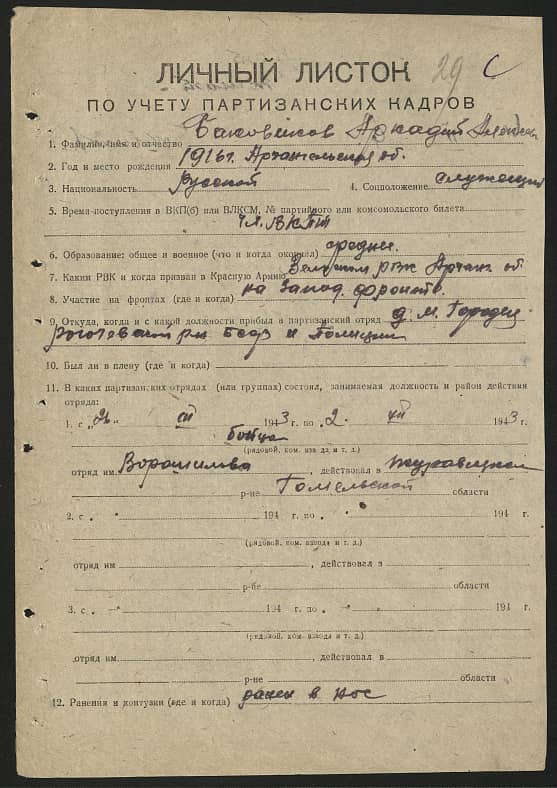 29 С
ЛИЧНЫЙ ЛИСТОК
ПО УЧЕТУ ПАРТИЗАНСКИХ КАДРОВ
1. Фамилия, имя и отчество Баковиков Аркадий
2. Год и место рождения 1916 г. Архангельская об.
3. Национальность Русской 4. Соцположение служащий
5. Время поступления в ВКП(б) или ВЛКСМ, № партийного или комсомольского билета
чл. ВКПб
6. Образование: общее и военное (что и когда окончил) среднее.
7. Каким РВК и когда призван в Красную Армию рвк Арханг об.
8. Участие на фронтах (где и когда) на Запад. фронте.
9. Откуда, когда и с какой должности прибыл в партизанский отряд д. М. Городец
р-н БССР из Полиции
10. Был ли в плену (где и когда)
11. В каких партизанских отрядах (или группах) состоял, занимаемая должность и район действия
отряда:
1. с „26" III 1943 г. по „2. VII 1943 г.
бойца
(рядовой, ком. взвода и т. д.)
отряд им. Ворошилова, действовал в Журавицком
р-не Гомельской области
2. с „ " 194 г. по „ " 194 г.
(рядовой, ком. взвода и т. д.)
отряд им , действовал в
р-не области
3. с „ " 194 г. по „ " 194 г.
(рядовой, ком. взвода и т. д.)
отряд им , действовал в
р-не области
12. Ранения и контузии (где и когда) ранен в нос